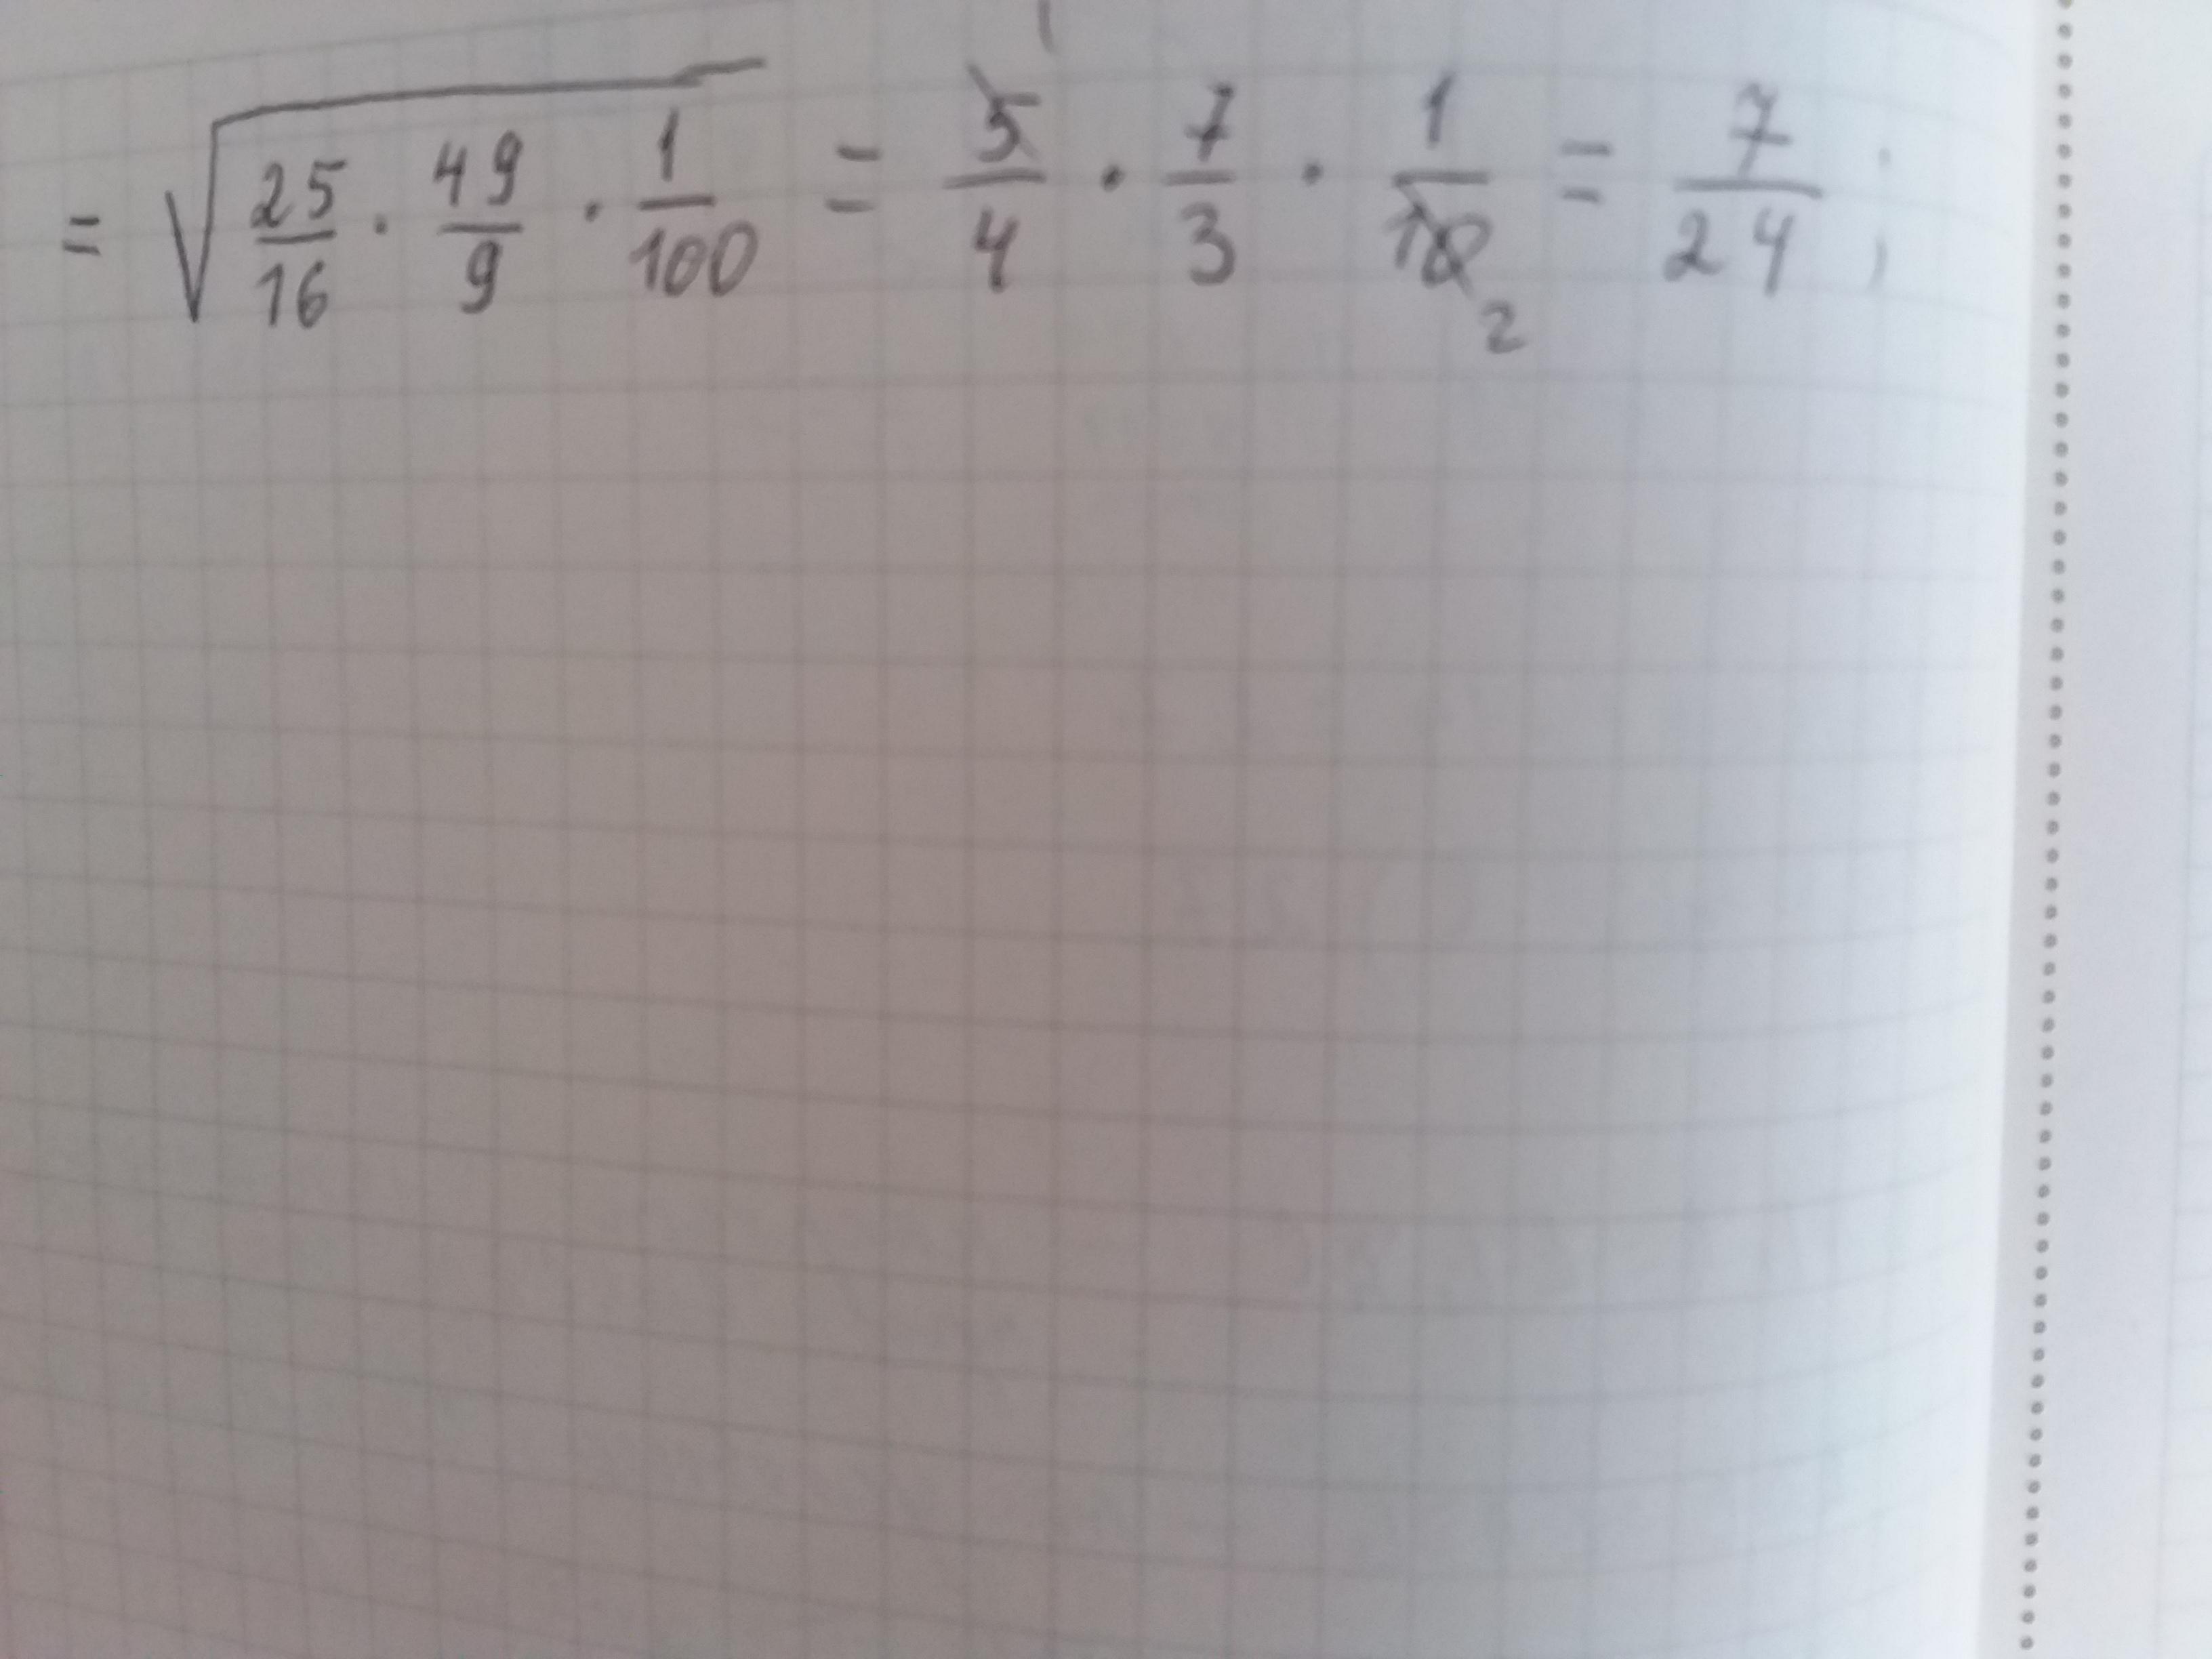 = √(25/16 · 49/9 · 1/100) = 5/4 · 7/3 · 1/10 2 = 7/24 ;